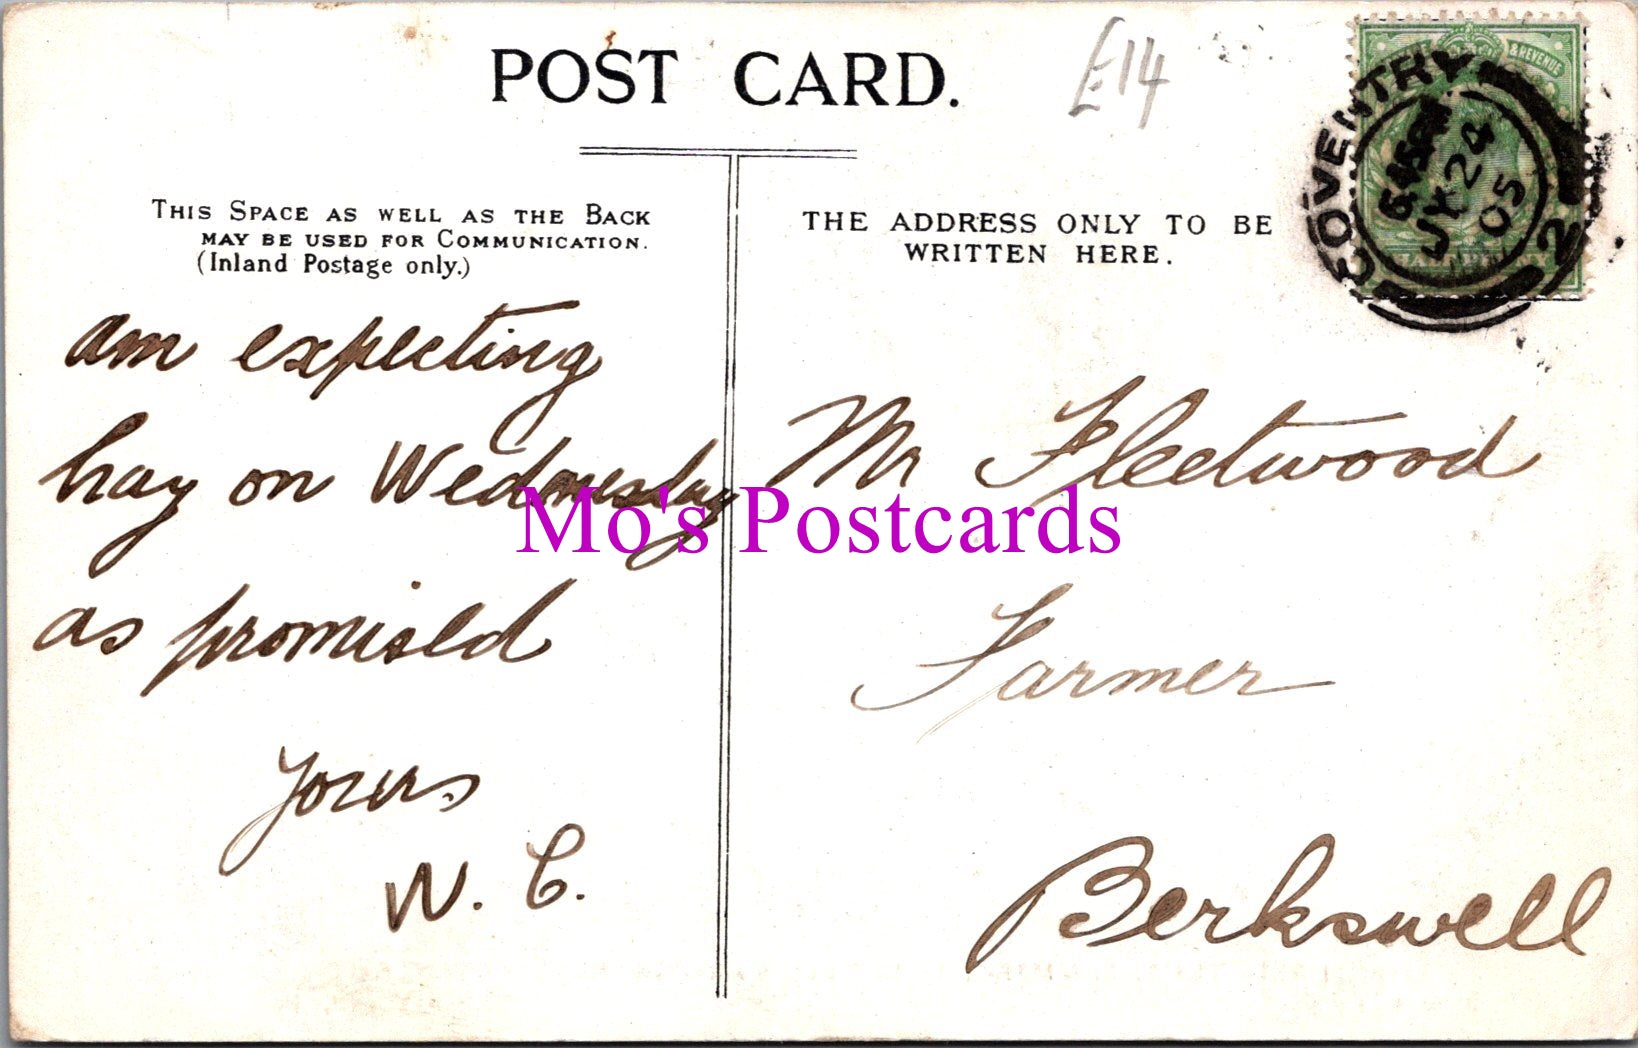 POST CARD.
£14
THIS SPACE AS WELL AS THE BACK
MAY BE USED FOR COMMUNICATION.
(Inland Postage only.)
THE ADDRESS ONLY TO BE
WRITTEN HERE.
& REVENUE
COVENTRY
JY 24
05
2
HALFPENNY
am expecting
hay on Wednesday
as promised
yours
N. C.
Mr Fleetwood
Farmer
Berkswell
Mo's Postcards